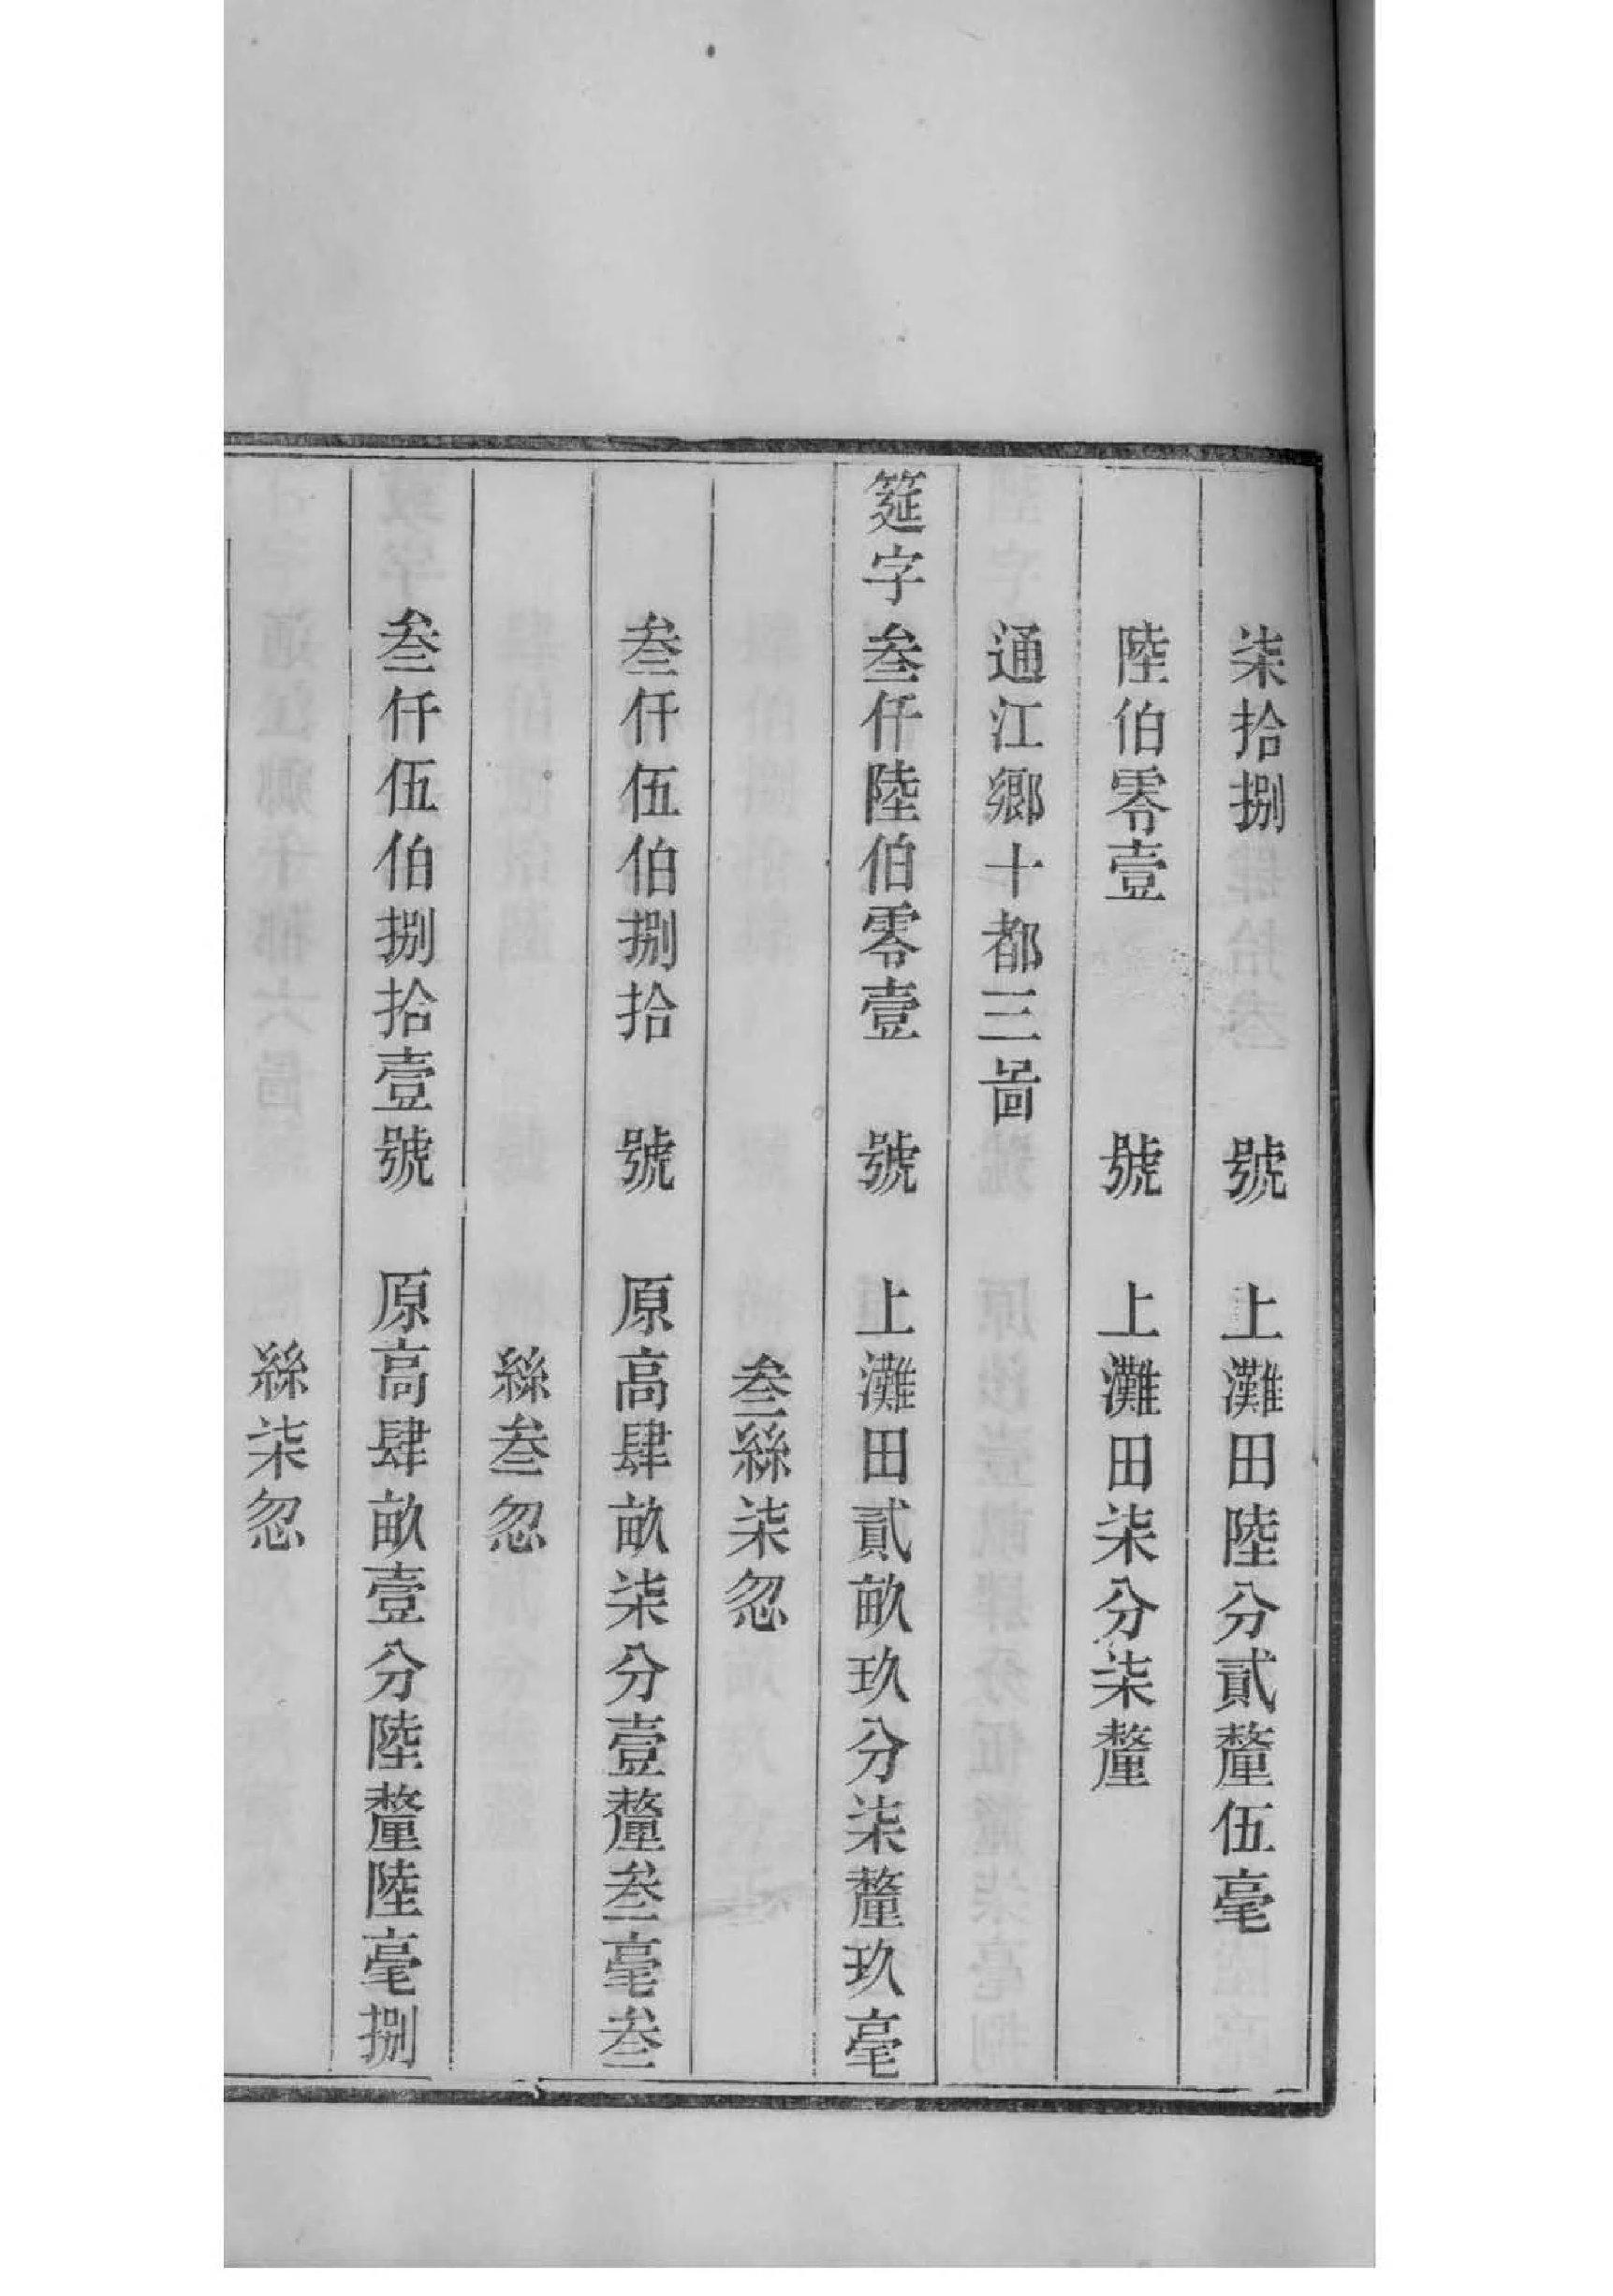 柒拾捌　號　上灘田陸分貳釐伍毫
陸伯零壹　號　上灘田柒分柒釐
通江鄉十都三啚
筵字叁仟陸伯零壹　號　上灘田貳畝玖分柒釐玖毫
叁絲柒忽
叁仟伍伯捌拾　號　原高肆畝柒分壹釐叁毫叁
絲叁忽
叁仟伍伯捌拾壹號　原高肆畝壹分陸釐陸毫捌
絲柒忽